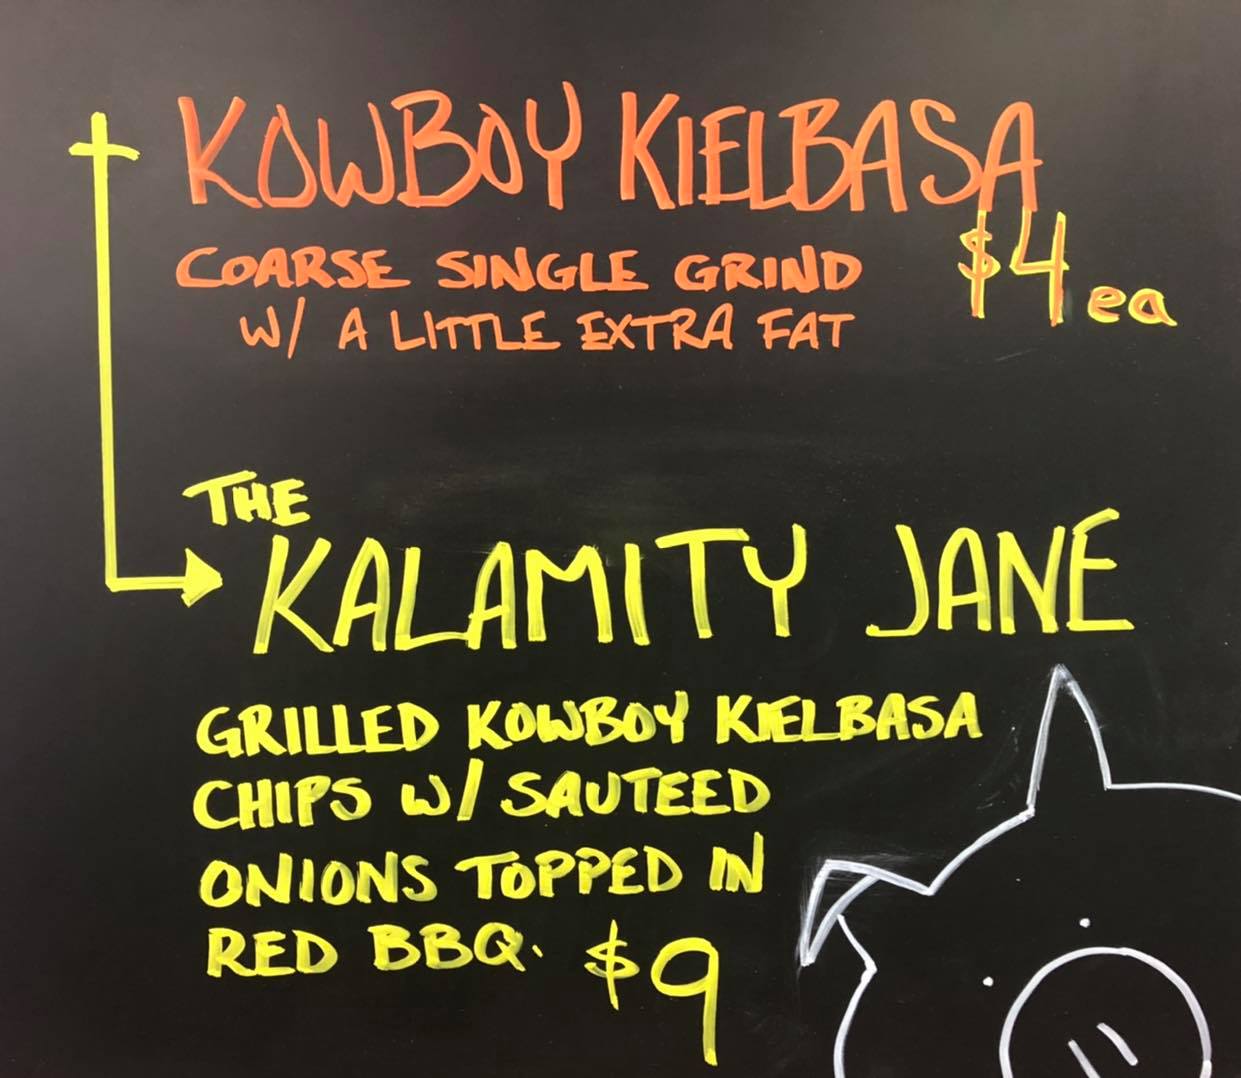 KOWBOY KIELBASA
$4 ea
COARSE SINGLE GRIND
W/ A LITTLE EXTRA FAT
THE
KALAMITY JANE
GRILLED KOWBOY KIELBASA
CHIPS W/ SAUTEED
ONIONS TOPPED IN
RED BBQ. $9